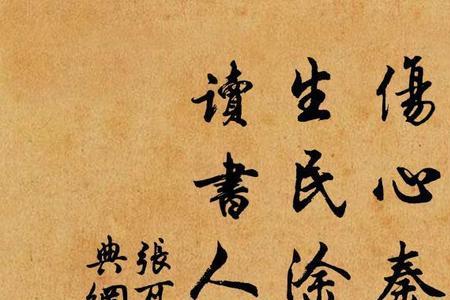 傷心秦
生民涂
讀書人
張可
典網